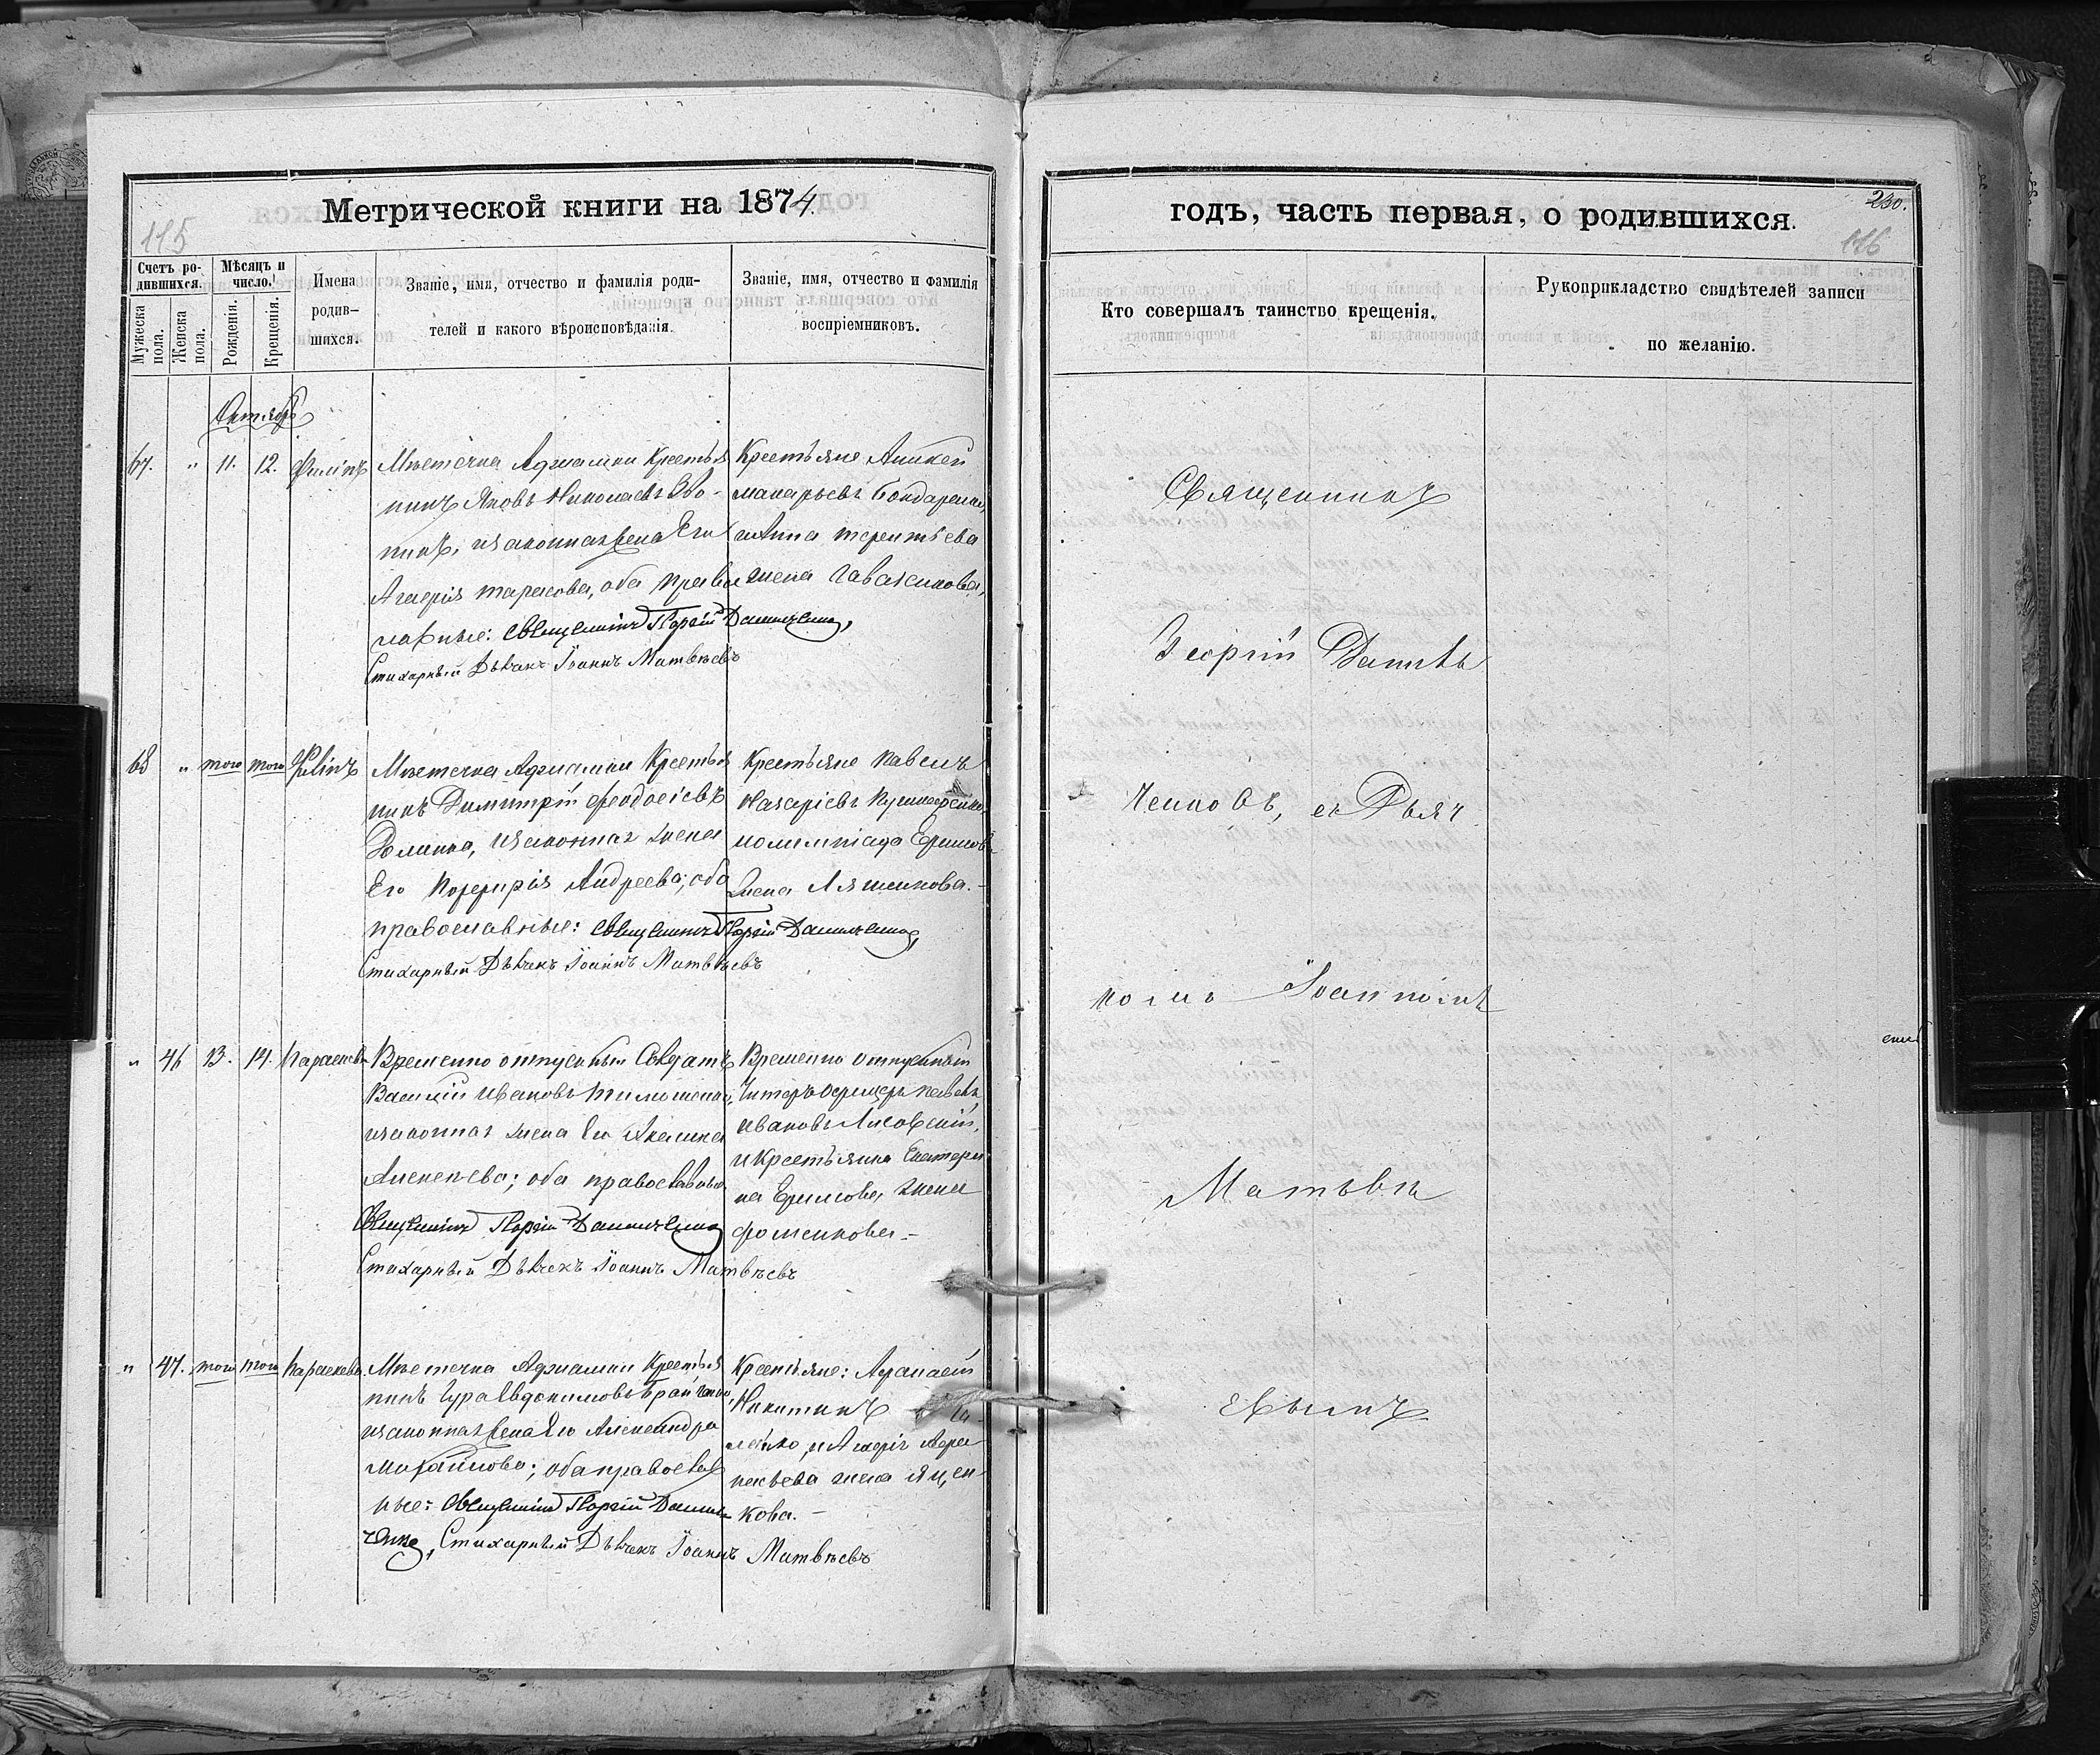 Метрической книги на 1874.
115
Счетъ ро-
дившихся.
Мѣсяцъ и
число.
Мужеска
пола.
Женска
пола.
Рожденія.
Крещенія.
Имена
родив-
шихся.
Званіе, имя, отчество и фамилія роди-
телей и какого вѣроисповѣданія.
Званіе, имя, отчество и фамилія
воспріемниковъ.
Октябрь
67. " 11. 12. Филіпъ
Мѣстечка Аджамки Крестья
нинъ Яковъ Николаевъ
нинъ, изаконная жена Его
Агаѳія тарасова, оба право
славные: Священникъ Георгій Данильченко,
Стихарный Дьячекъ Іоаннъ Матвѣевъ
Крестьяне Аникей
макарьевъ Бондаренко,
иАнна терентьева
жена
68 " того того Филіпъ
Мѣстечка Аджамки Крестья
нинъ Димитрій феодосіевъ
изаконная жена
Его Порфирія Андреева; оба
православные: Священникъ Георгій Данильченко,
Стихарный Дьячекъ Іоаннъ Матвѣевъ
Крестьяне Павелъ
Назаріевъ
иолимпіада Ефимова
жена Ляшенкова.-
" 46 13. 14. Параскева
Временно отпускный Солдатъ
Василій ивановъ тимошенко,
изаконная жена Его
Алексѣева; оба православные
Священникъ Георгій Данильченко
Стихарный Дьячекъ Іоаннъ Матвѣевъ
Временно отпускный
Унтеръ офицеръ павелъ
ивановъ Лисовскій,
и крестьянка Екатери
на Ефимова жена
фоменкова.-
" 47. того того Параскева
Мѣстечка Аджамки Крестья
нинъ Гура Евдокимовъ
изаконная жена Его Александра
Михайлова; оба православ
ные: Священникъ Георгій Даниль
ченко, Стихарный Дьячекъ Іоаннъ Матвѣевъ
Крестьяне: Афанасій
Никитинъ
иАгафія
жена яцен
кова.-
годъ, часть первая, о родившихся.
230.
116
Кто совершалъ таинство крещенія.
Рукоприкладство свидѣтелей записи
по желанію.
Священникъ
Георгій Данилъ
ченковъ, съ Дьяч
комъ Іоанномъ
Матвѣ
евымъ